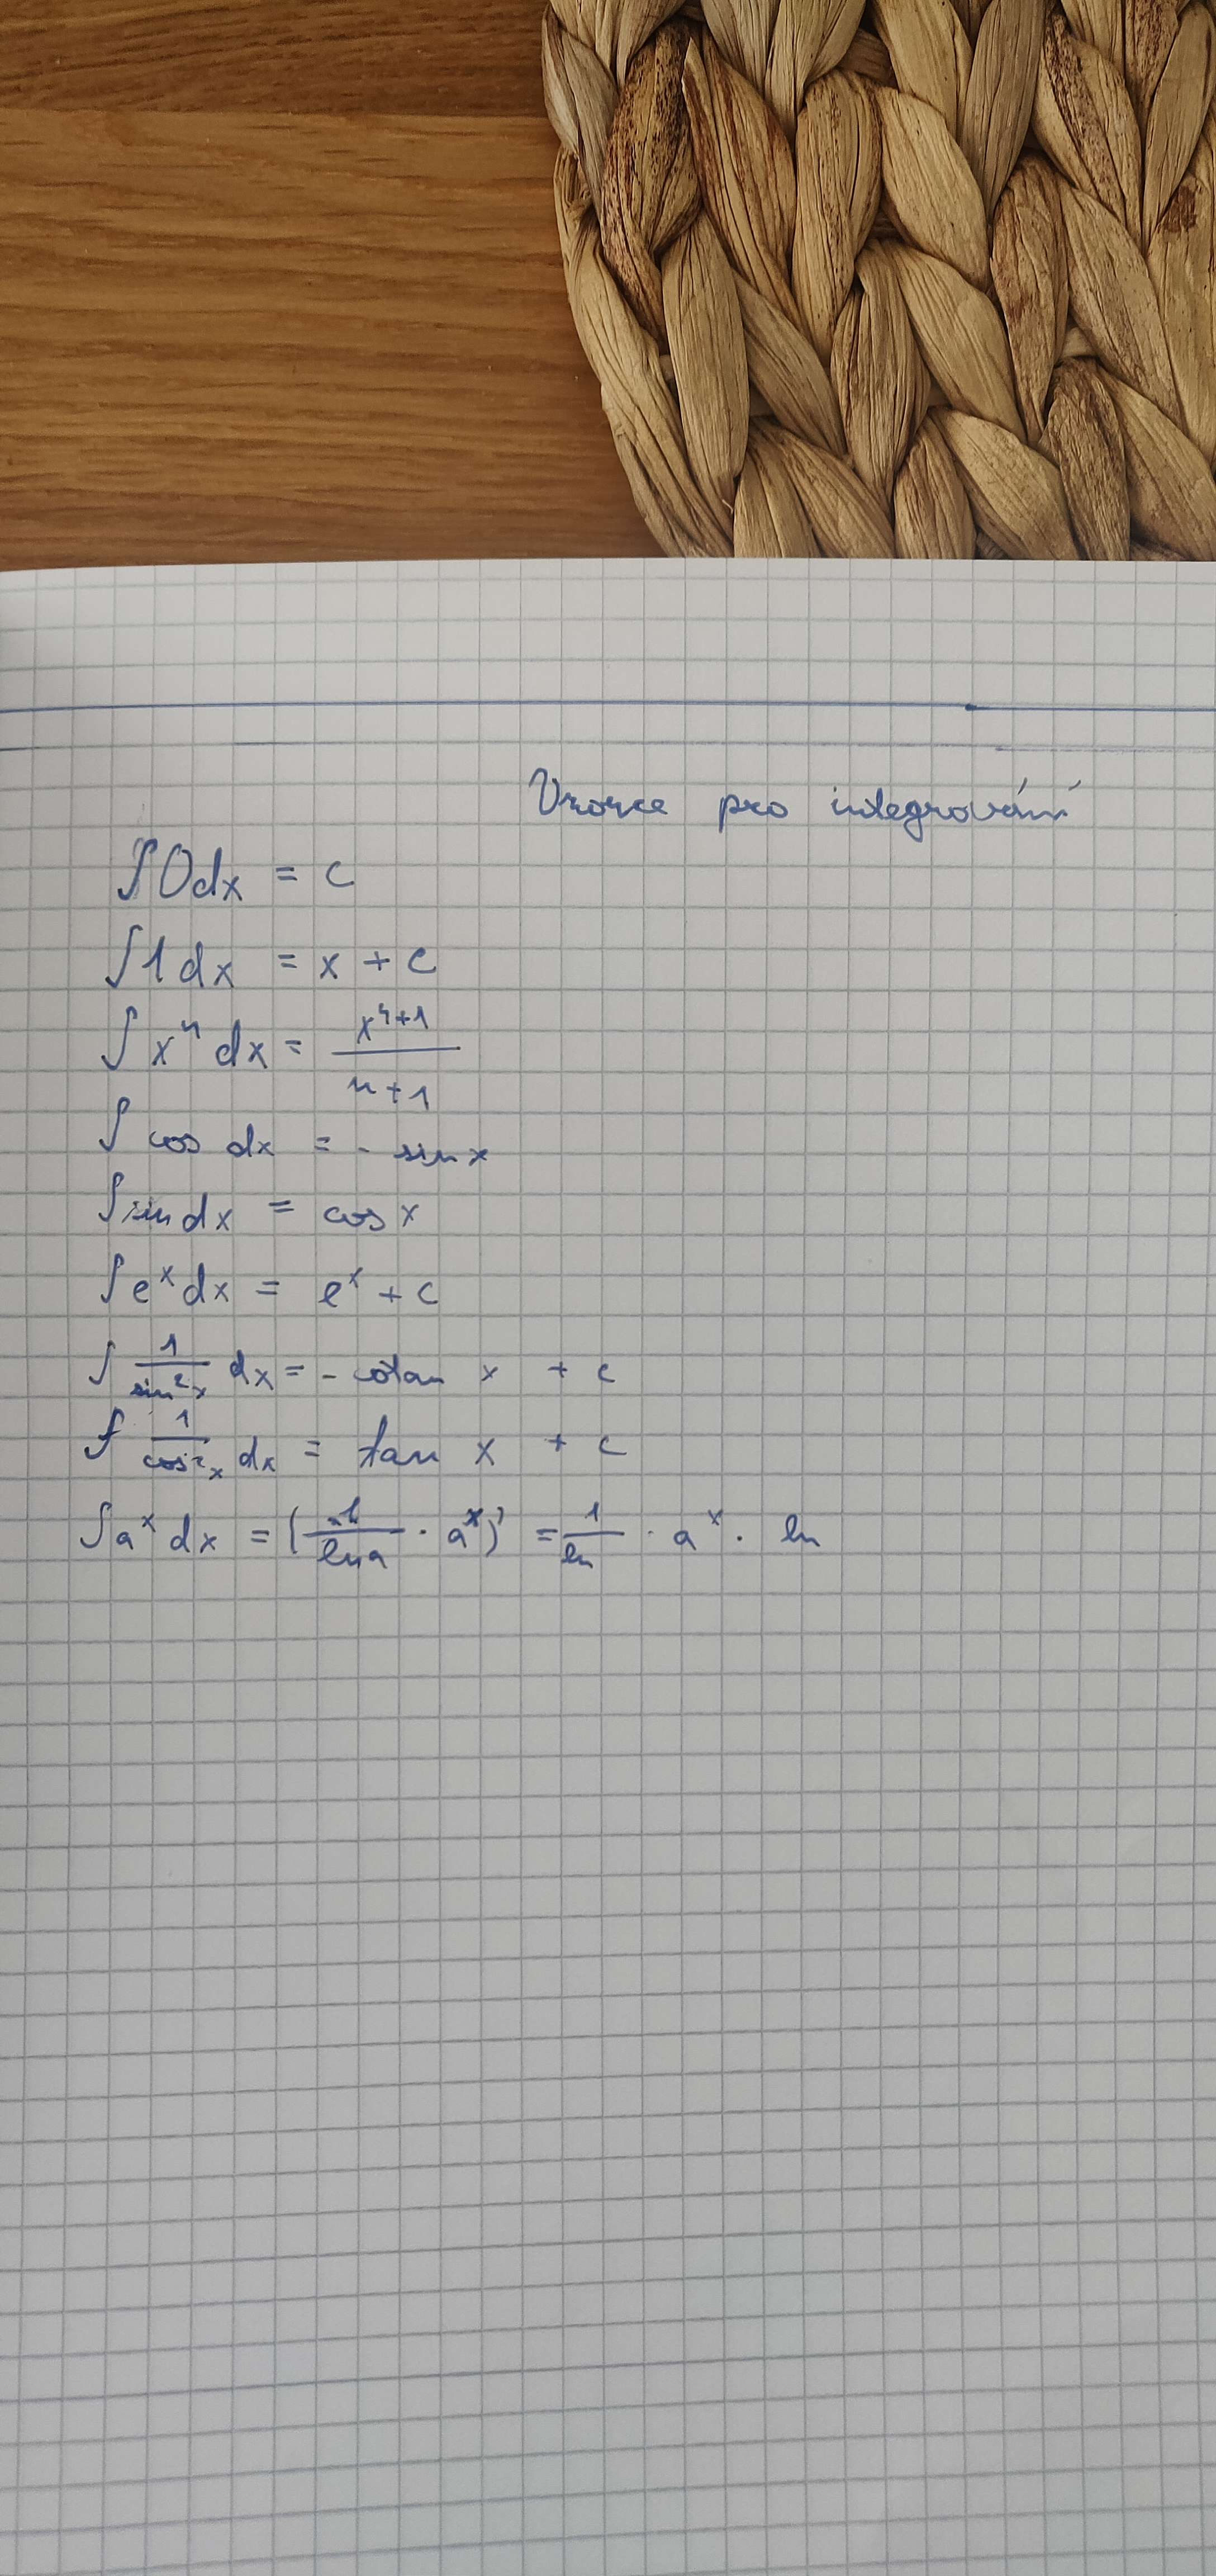 Vzorce pro integrování
∫0dx = c
∫1dx = x + c
∫x^n dx = x^(n+1)/(n+1)
∫cos dx = - sin x
∫sin dx = cos x
∫e^x dx = e^x + c
∫1/(sin^2 x) dx = - cotan x + c
∫1/(cos^2 x) dx = tan x + c
∫a^x dx = (1/(ln a) · a^x)' = 1/ln · a^x · ln